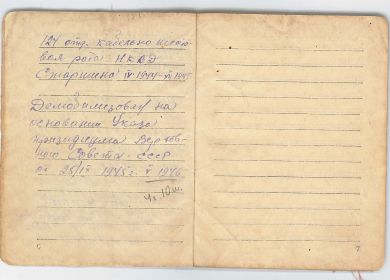 124 отд. кабельно шесто-
вая рота НКВД
Старшина IV 1944-VII 1945
Демобилизован на
основании Указа
президиума Верхов-
ного Совета СССР
от 25/IX 1945 г. V 1946
6
7